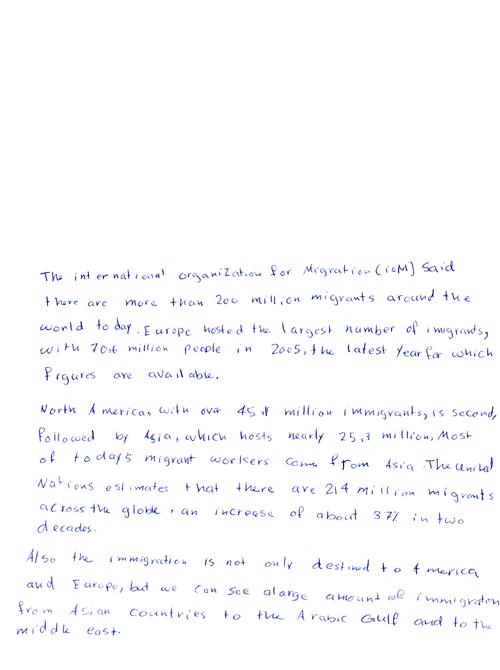 The international organization for Migration (ioM) Said
there are more than 200 million migrants around the
world today. Europe hosted the largest number of imigrants,
with 70.6 million people in 2005, the latest Year for which
Figures are available.
North America, with over 45,1 million immigrants, is second,
Followed by Asia, which hosts nearly 25,3 million, Most
of todays migrant workers come from Asia. The united
Nations estimates that there are 214 million migrants
across the globe, an increase of about 37% in two
decades.
Also the immigration is not only destined to America
and Europe, but we can see alarge amount of immigration
from Asian countries to the Arabic Gulf and to the
middle east.